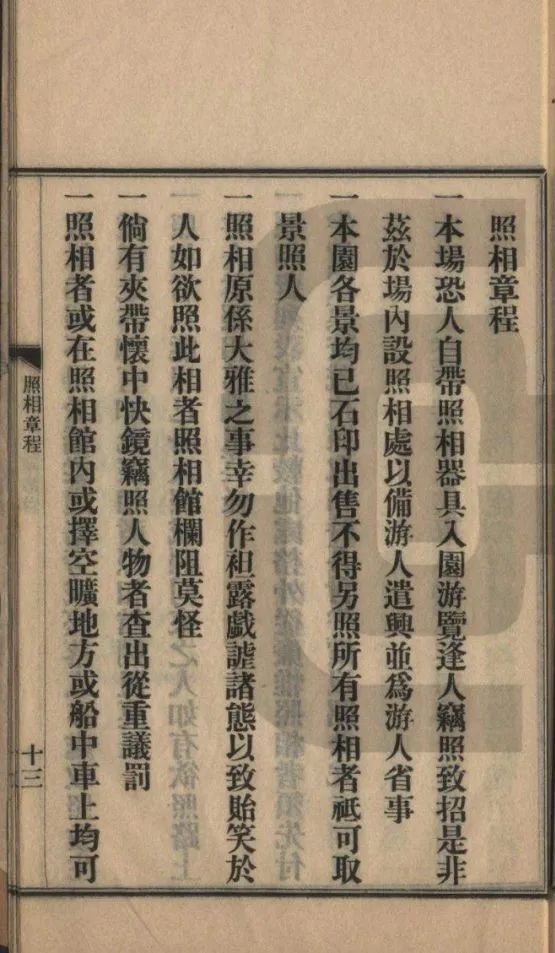 照相章程
一本場恐人自帶照相器具入園游覽逢人竊照致招是非
茲於場內設照相處以備游人遣興並爲游人省事
一本園各景均已石印出售不得另照所有照相者祗可取
景照人
一照相原係大雅之事幸勿作袒露戲謔諸態以致貽笑於
人如欲照此相者照相館欄阻莫怪
一倘有夾帶懷中快鏡竊照人物者查出從重議罰
一照相者或在照相館內或擇空曠地方或船中車上均可
照相章程
十三